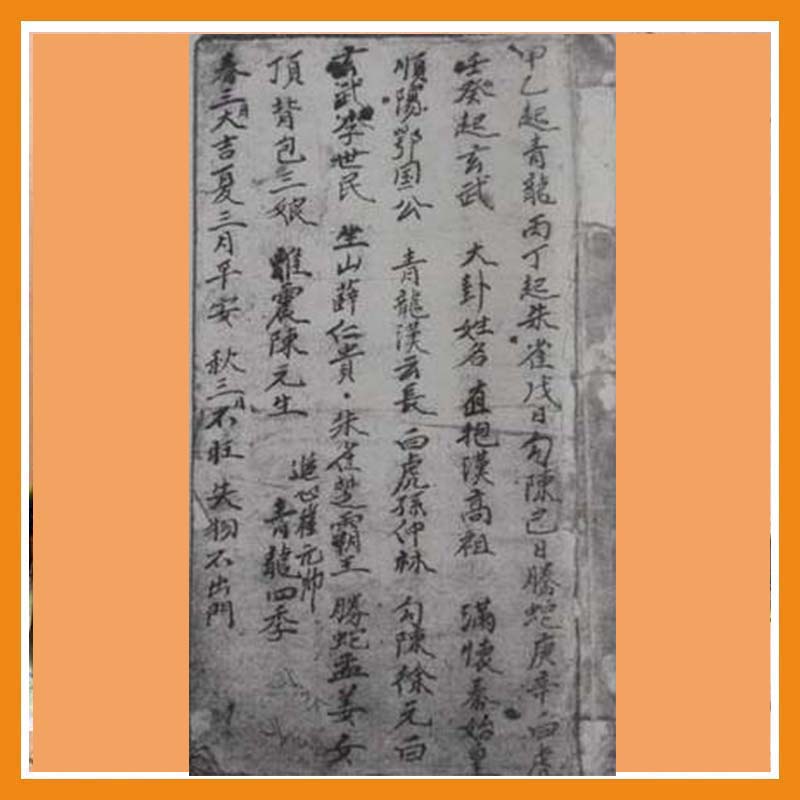 甲乙起青龍丙丁起朱雀戊日勾陳己日騰蛇庚辛白虎
壬癸起玄武 大卦姓名 直抱漢高祖 滿懷秦始皇
順陽鄂国公 青龍漢云長 白虎孫仲林 勾陳徐元白
玄武李世民 坐山薛仁貴·朱雀楚霸王 騰蛇孟姜女
頂背包三娘 雕震陳元生 崔元帅 青龍四季
春三月大吉夏三月平安 秋三月不旺 失物不出門